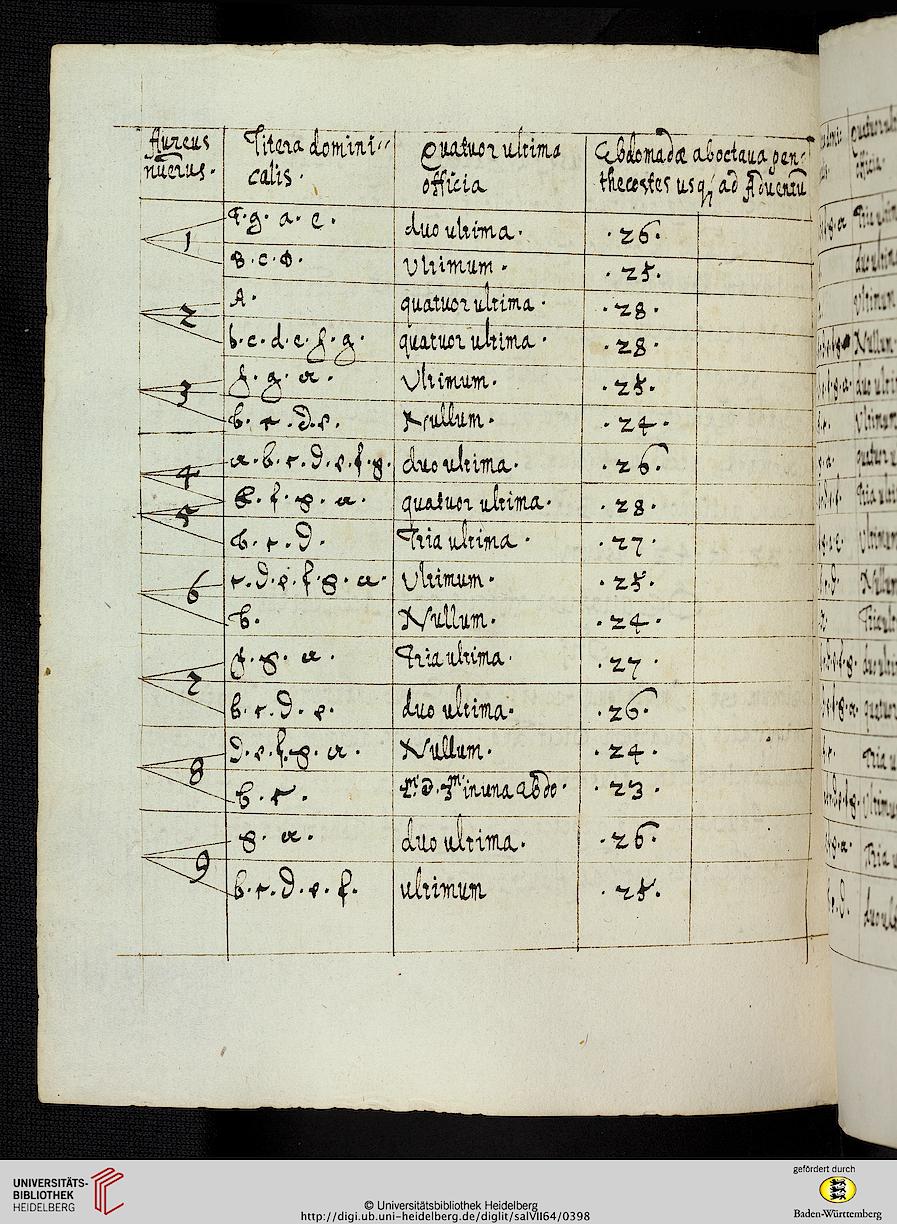 Aureus Litera domini⸗ Quatuor ultima Ebdomadæ ab octaua pen⸗
nūerus. calis. officia thecostes usq; ad Aduentū
1 F. g. a. e. duo ultima. .26.
B. c. d. Ultimum. .25.
2 A. quatuor ultima. .28.
b. c. d. e. f. g. quatuor ultima. .28.
3 f. g. a. Ultimum. .25.
b. c. d. e. Nullum. .24.
4 a. b. c. d. e. f. g. duo ultima. .26.
5 e. f. g. a. quatuor ultima. .28.
b. c. d. Tria ultima. .27.
6 c. d. e. f. g. a. Ultimum. .25.
b. Nullum. .24.
7 f. g. a. Tria ultima. .27.
b. c. d. e. duo ultima. .26.
8 d. e. f. g. a. Nullum. .24.
b. c. 3m in una ebdo. .23.
9 g. a. duo ultima. .26.
b. c. d. e. f. ultimum .25.
UNIVERSITÄTS-
BIBLIOTHEK
HEIDELBERG
© Universitätsbibliothek Heidelberg
http://digi.ub.uni-heidelberg.de/diglit/salVII64/0398
gefördert durch
Baden-Württemberg